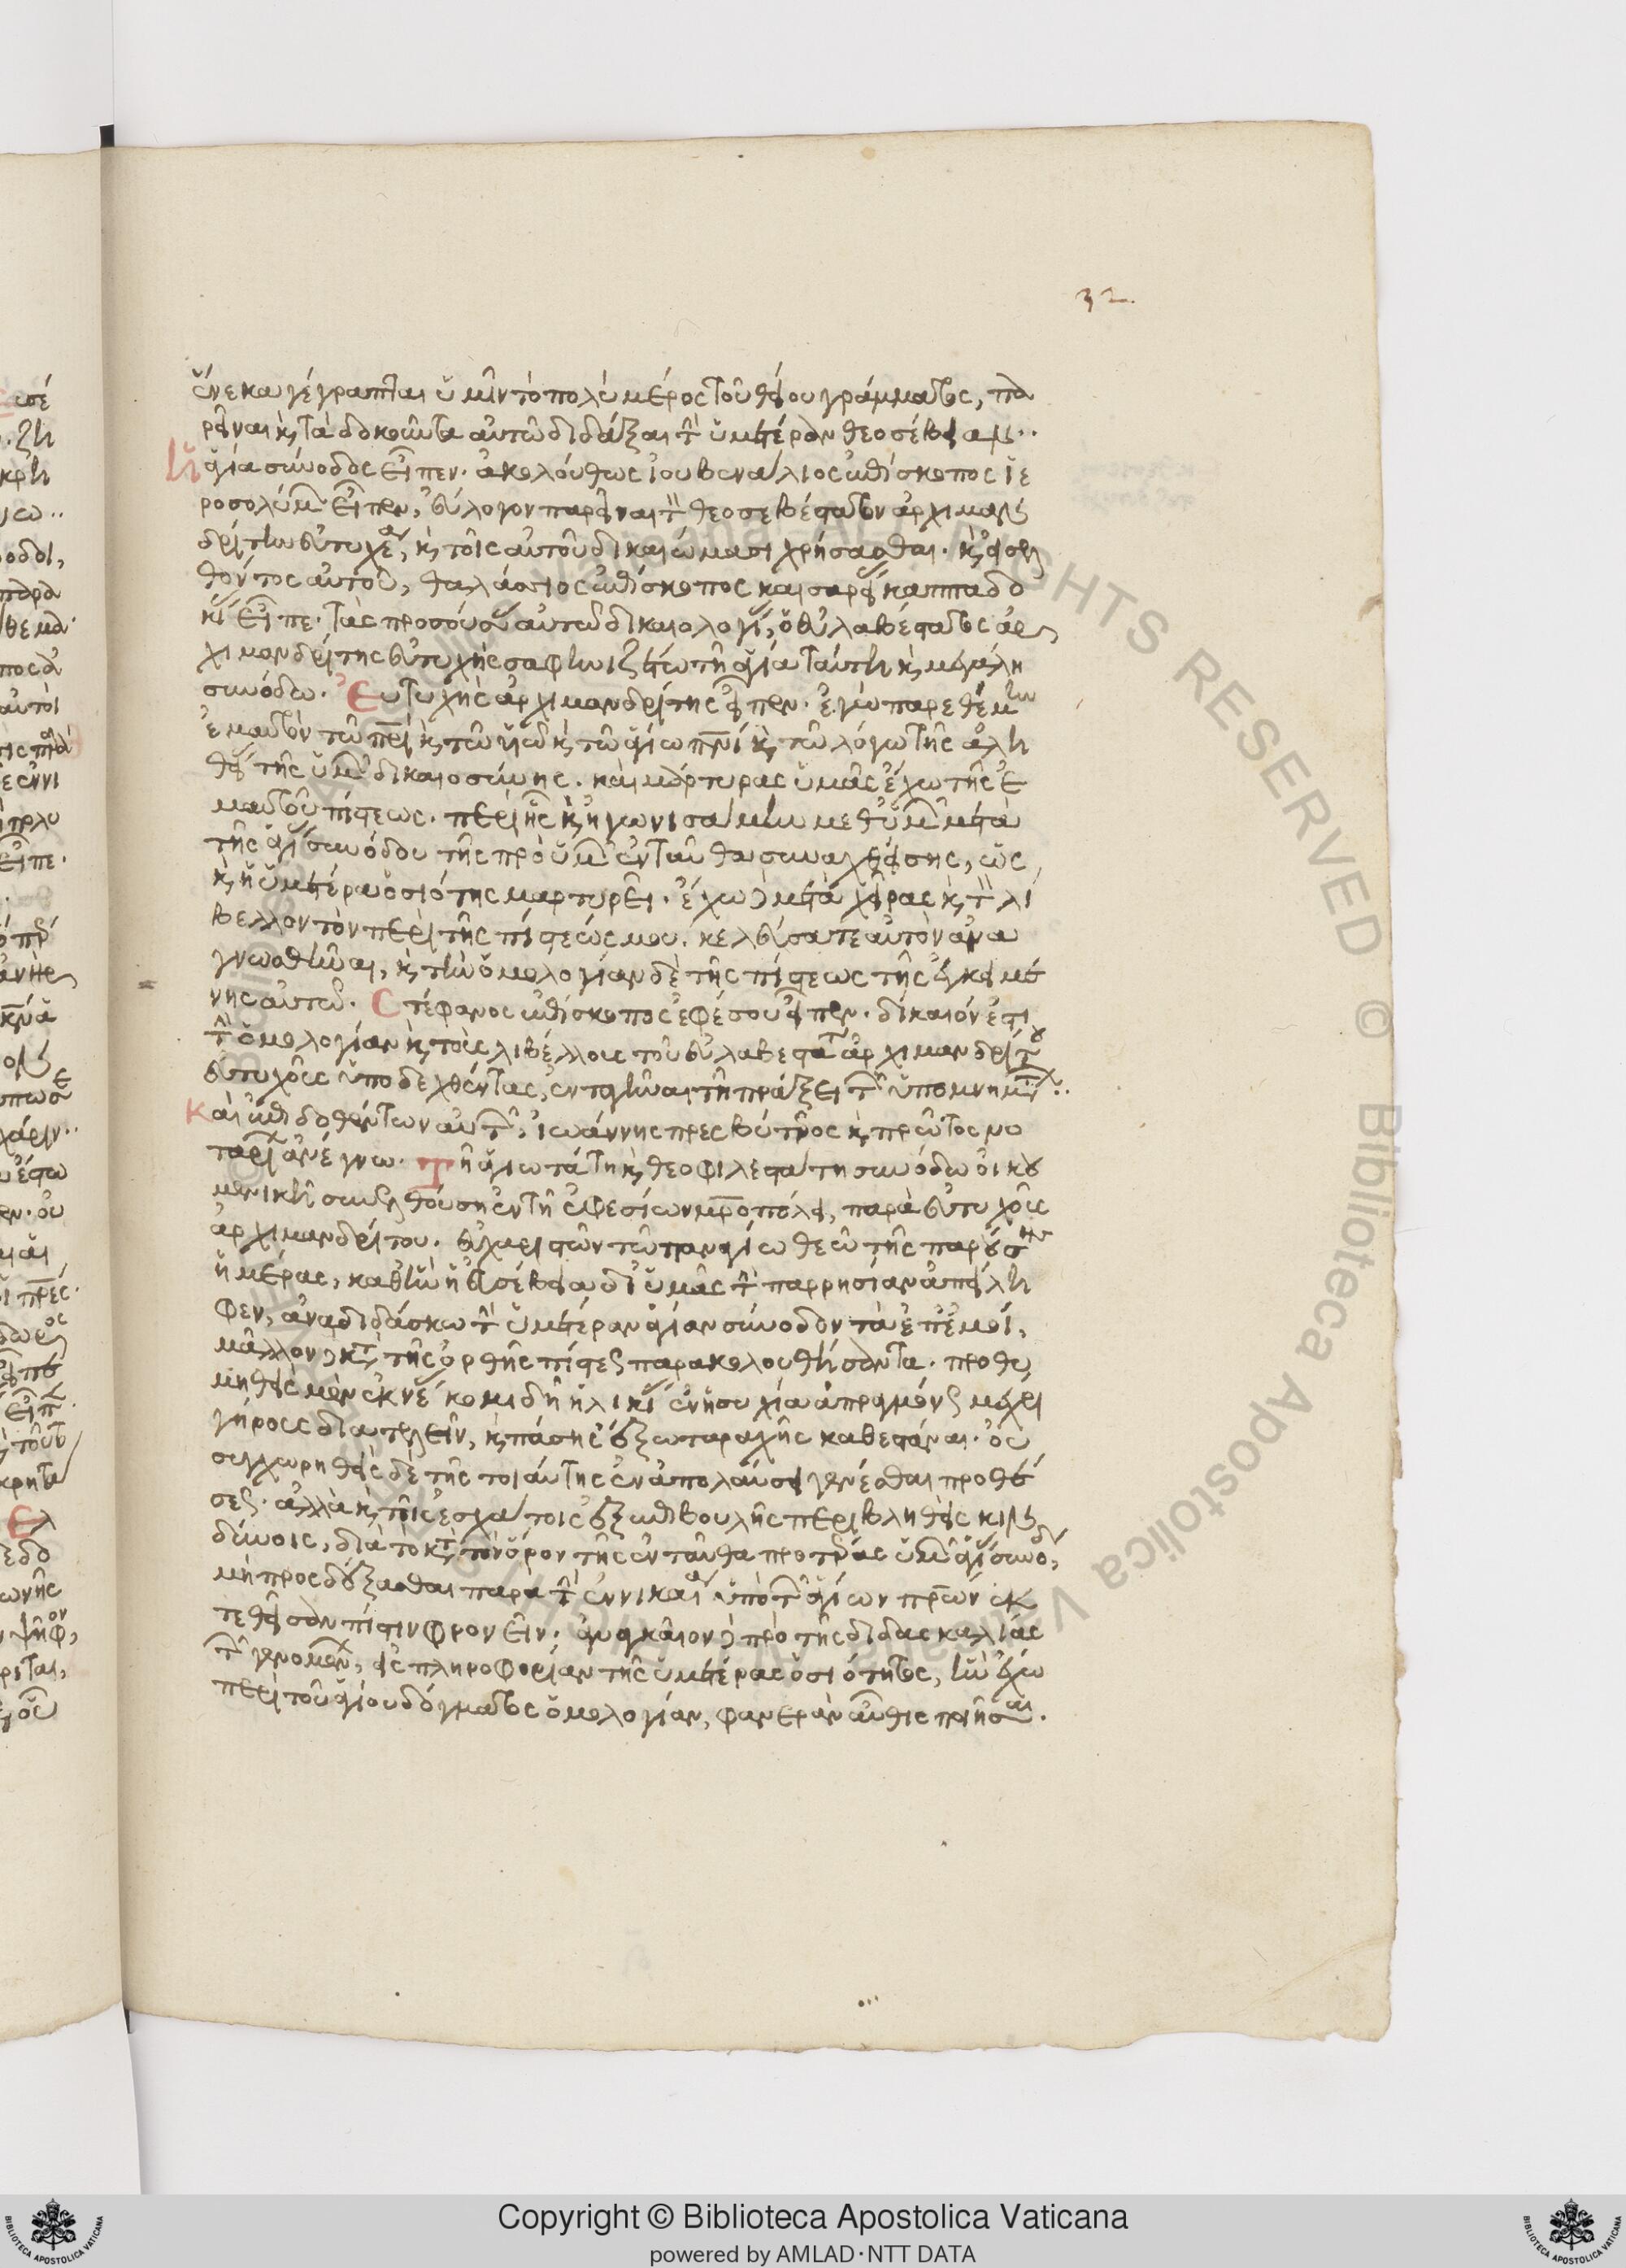 32.
ἕνεκα γέγραπται ὑμῖν τὸ πολὺ μέρος τοῦ θείου γράμματος, πα
ρεῖναι κ̀ τὰ δοκοῦντα αὐτῶ διδάξαι τ̀ ὑμετέραν θεοσέβειαν..
Ἡ ἁγία σύνοδος εἶπεν· ἀκολούθως ἰουβενάλιος ἐπίσκοπος ἱε
ροσολύμ εἶπεν, εὔλογον παρεῖναι τ̀ θεοσεβέστατον ἀρχιμαν
δρίτην εὐτυχέα, κ̀ τοῖς αὐτοῦ δικαιώμασι χρήσασθαι. κ̀ εἰσελ
θόντος αὐτοῦ, θαλάσσιος ἐπίσκοπος καισαρεί καππαδο
κί εἶπε· τὰς προσούσας αὐτῶ δικαιολογί, ὁ εὐλαβέστατος ἀρ
χιμανδρίτης εὐτυχὴς σαφηνιζέτω τῆ ἁγία ταύτη κ̀ μεγάλη
συνόδω. Εὐτυχὴς ἀρχιμανδρίτης εἶπεν· ἐγὼ παρεθέμην
ἐμαυτὸν τῶ πρι κ̀ τῶ υἱῶ κ̀ τῶ ἁγίω πνι κ̀ τῶ λόγω τῆς ἀλη
θεί τῆς ὑμ δικαιοσύνης. καὶ μάρτυρας ὑμᾶς ἔχω τῆς ἐ
μαυτοῦ πίστεως. περὶ ἧς κ̀ ἠγωνισάμην μεθ' ὑμ μετὰ
τῆς ἁγί συνόδου τῆς πρὸ ὑμ ἐνταῦθα συναχθείσης, ὡς
κ̀ ἡ ὑμετέρα ὁσιότης μαρτυρεῖ. ἔχω δὲ μετὰ χεῖρας κ̀ τ̀ λί
βελλον τὸν περὶ τῆς πίστεώς μου. κελεύσατε αὐτὸν ἀνα
γνωσθῆναι, κ̀ τὴν ὁμολογίαν δὲ τῆς πίστεως τῆς ἐγκειμέ
νης αὐτῶ. Στέφανος ἐπίσκοπος ἐφέσου εἶπεν· δίκαιόν ἐστι
τ̀ ὁμολογίαν κ̀ τοὺς λιβέλλους τοῦ εὐλαβεστάτ ἀρχιμανδρίτου
εὐτυχοῦς ὑποδεχθέντας, ἐνταγῆναι τῆ πράξει τ̂ ὑπομνημάτ..
Καὶ ἐπιδοθέντων αὐτ̂, ἰωάννης πρεσβύτερος κ̀ πρῶτος νο
ταρί ἀνέγνω. Τῆ ἁγιωτάτη κ̀ θεοφιλεστάτη συνόδω οἰκου
μενικῆ συνελθούση ἐν τῆ ἐφεσίων μροπόλει, παρὰ εὐτυχοῦς
ἀρχιμανδρίτου. εὐχαριστῶν τῶ παναγίω θεῶ τῆς παρούσης
ἡμέρας, καθ' ἣν ἡ εὐσέβεια δι' ὑμᾶς τ̀ παρρησίαν ἀπείλη
φεν, ἀναδιδάσκω τ̀ ὑμετέραν ἁγίαν σύνοδον τὰ ἐπ' ἐμοί,
μᾶλλον δὲ κτ̀ τῆς ὀρθῆς πίστεως παρακολουθήσαντα. προθυ
μηθεὶς μὲν ἐκ νέ κομιδῆ ἡλικί ἐν ἡσυχία ἀπραγμόνως μέχρι
γήρους διατελεῖν, κ̀ πάσης ἔξω ταραχῆς καθεστάναι. οὐ
συγχωρηθεὶς δὲ τῆς τοιαύτης ἐν ἀπολαύσει γενέσθαι προθέ
σεως. ἀλλὰ κ̀ τοῖς ἐσχάτοις ἐξ ἐπιβουλῆς περιβληθεὶς κιν
δύνοις, διὰ τὸ κτ̀ τὸν ὅρον τῆς ἐνταῦθα πρὸ τῆς ὑμ ἁγί συνόδου,
μὴ προσδέξασθαι παρὰ τ̀ ἐν νικαία ὑπὸ τ̂ ἁγίων πρων ἐκ
τεθεῖσαν πίστιν φρονεῖν. ἀναγκαῖον δὲ πρὸ τῆς διδασκαλίας
τ̂ γενομέν, εἰς πληροφορίαν τῆς ὑμετέρας ὁσιότητος, ἣν ἔχω
περὶ τοῦ ἁγίου δόγματος ὁμολογίαν, φανερὰν αὖθις ποιῆσαι.
Copyright © Biblioteca Apostolica Vaticana
powered by AMLAD·NTT DATA